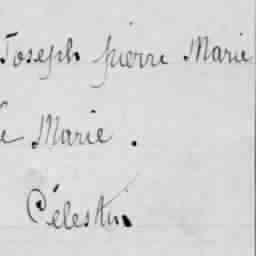 Joseph pierre Marie
e Marie.
Célestin